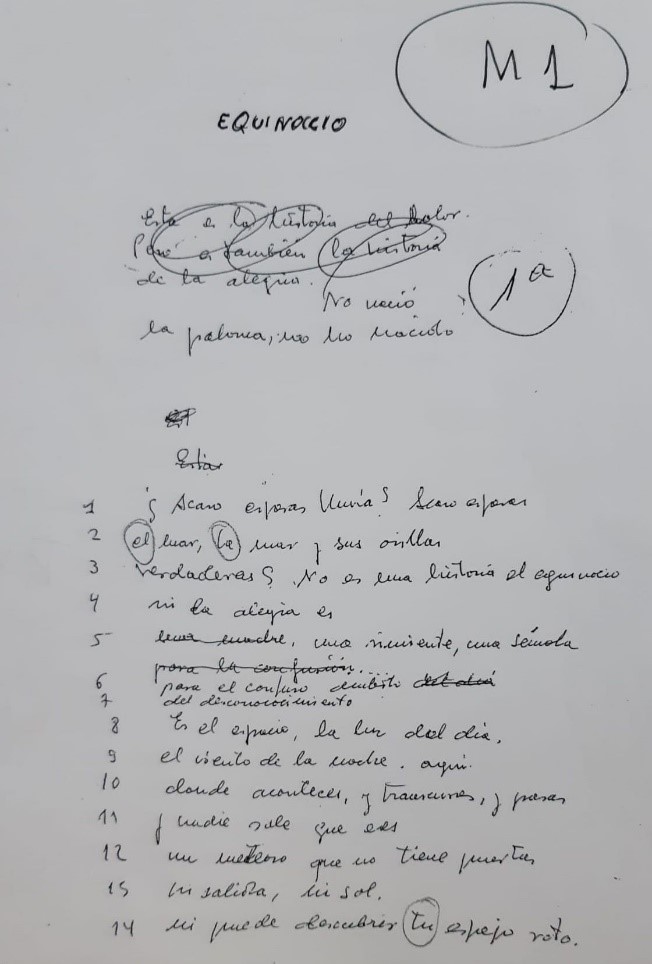 M 1
EQUINOCCIO
Esta es la historia del dolor.
Pero es también la historia
de la alegría.
No nació
1ª
la paloma, no ha nacido
Estar
1 ¿Acaso esperas lluvia? Acaso esperas
2 el mar, la mar y sus orillas
3 verdaderas? No es una historia el equinoccio
4 ni la alegría es
5 una madre, una simiente, una sémola
para la confusión...
6 para el confuso ámbito del día
7 del desconocimiento
8 Es el espacio, la luz del día,
9 el viento de la noche. aquí.
10 donde aconteces, y transcurres, y pasas
11 y nadie sabe que eres
12 un meteoro que no tiene puertas
13 ni salida, ni sol.
14 ni puede descubrir tu espejo roto.